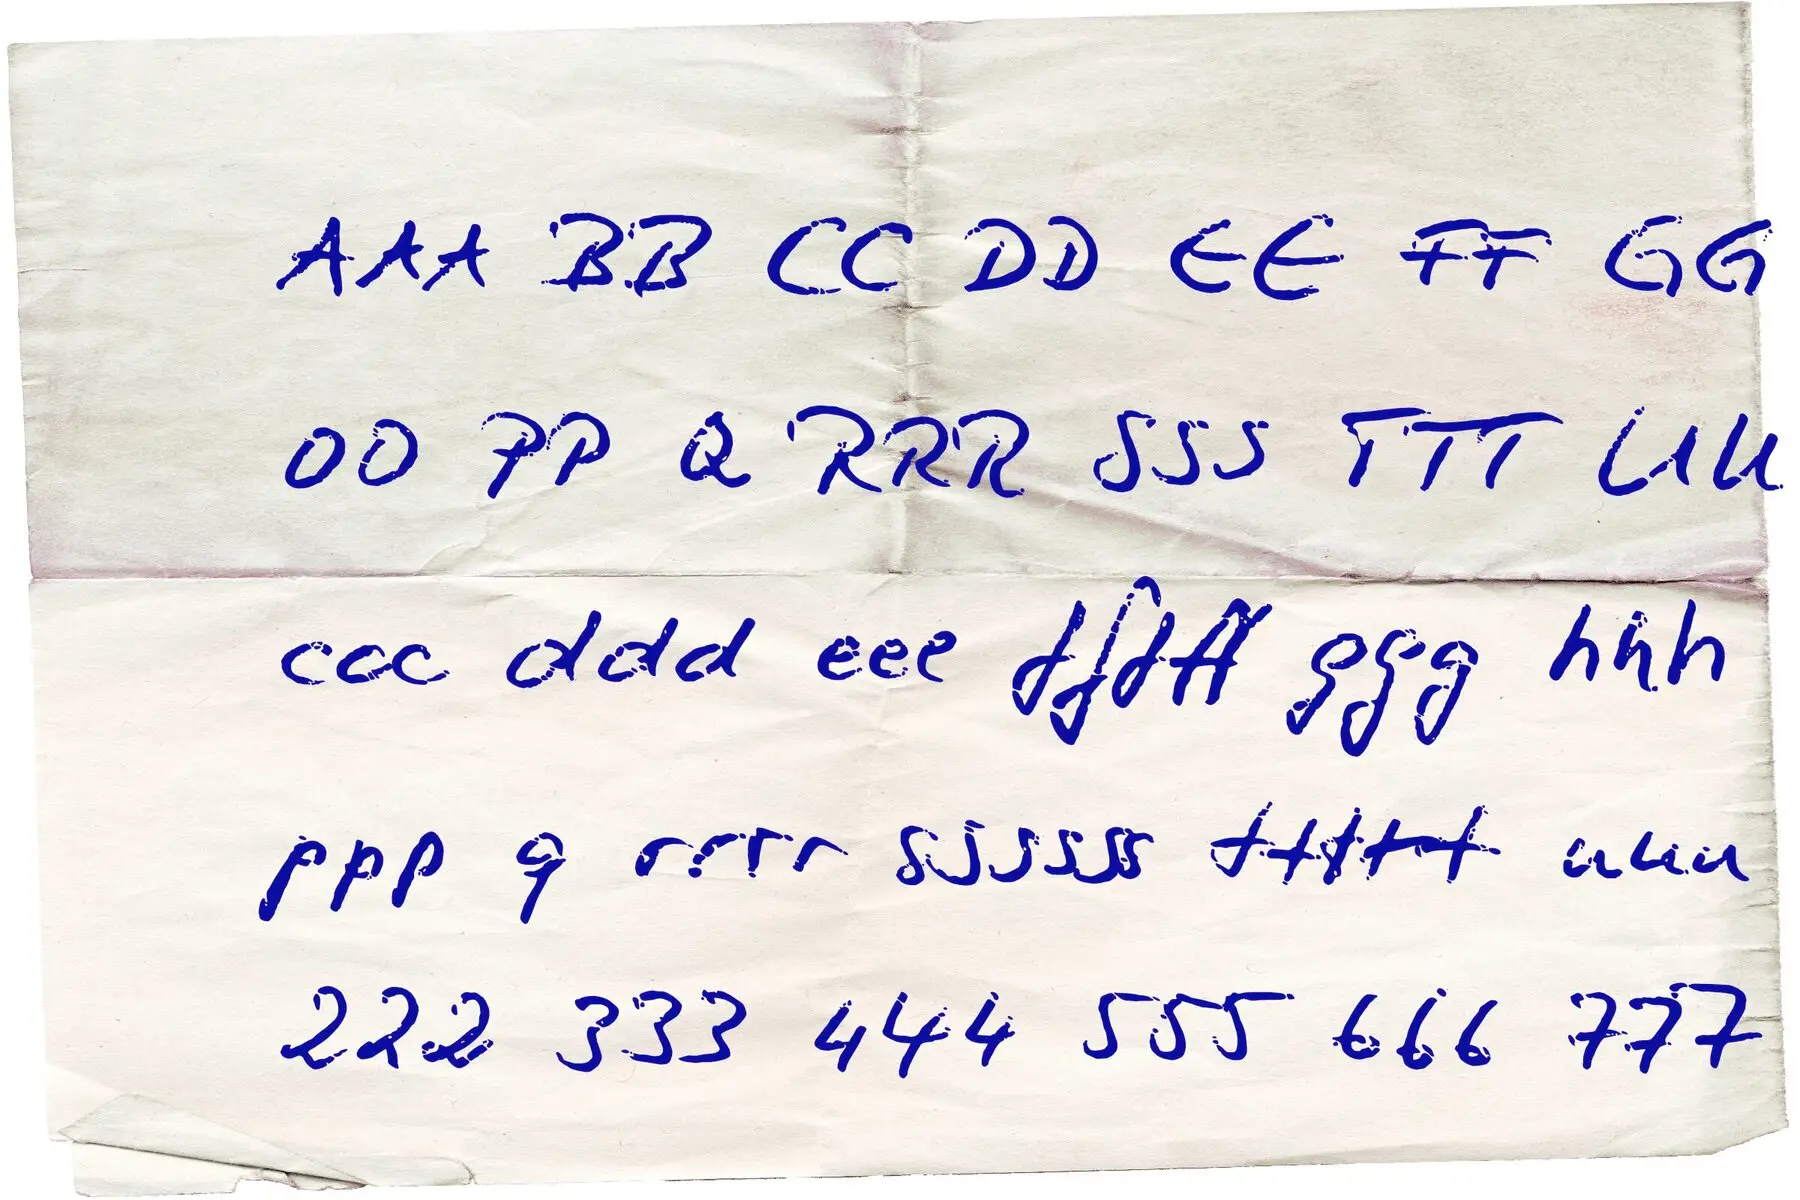 AAA BB CC DD EE FF GG
OO PP Q RRR SSS TTT UUU
ccc ddd eee fffff ggg hhh
ppp q rrrr ssssss ttttt uuu
222 333 444 555 666 777